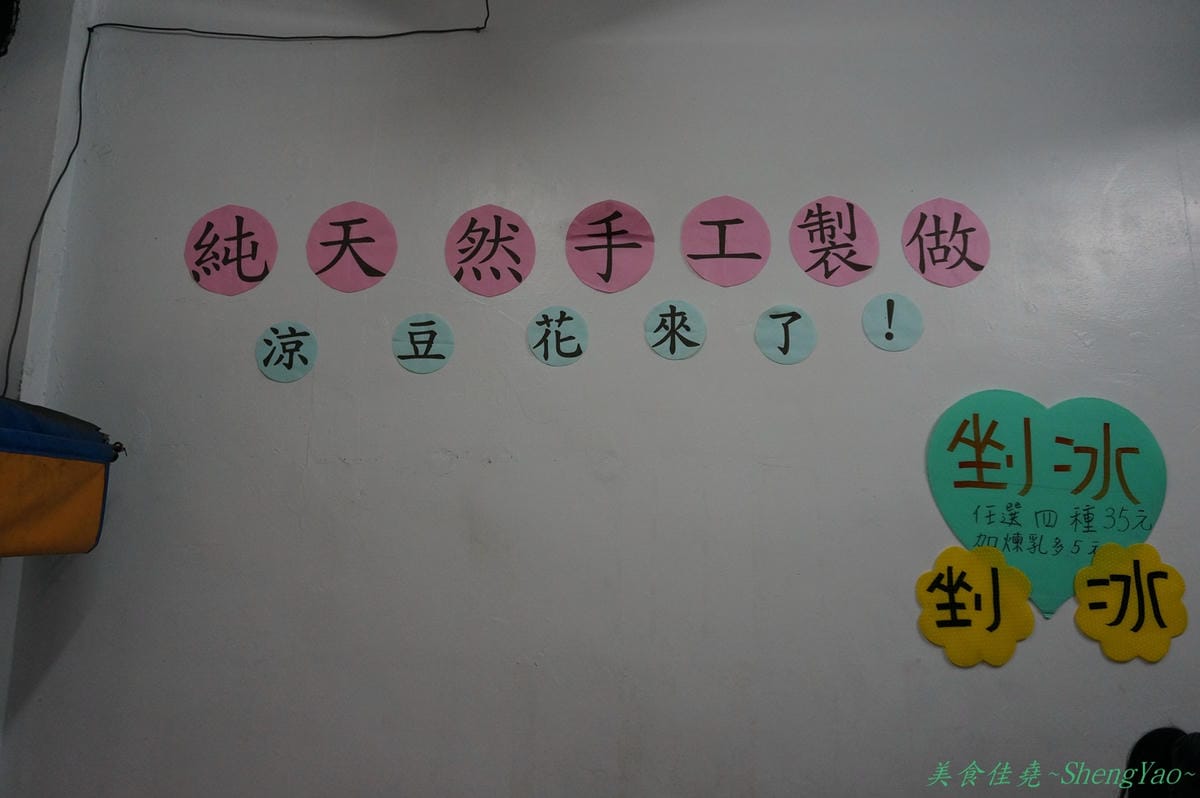 純天然手工製做
涼豆花來了!
剉冰
任選四種35元
加煉乳多5元
剉冰
美食佳堯~ShengYao~